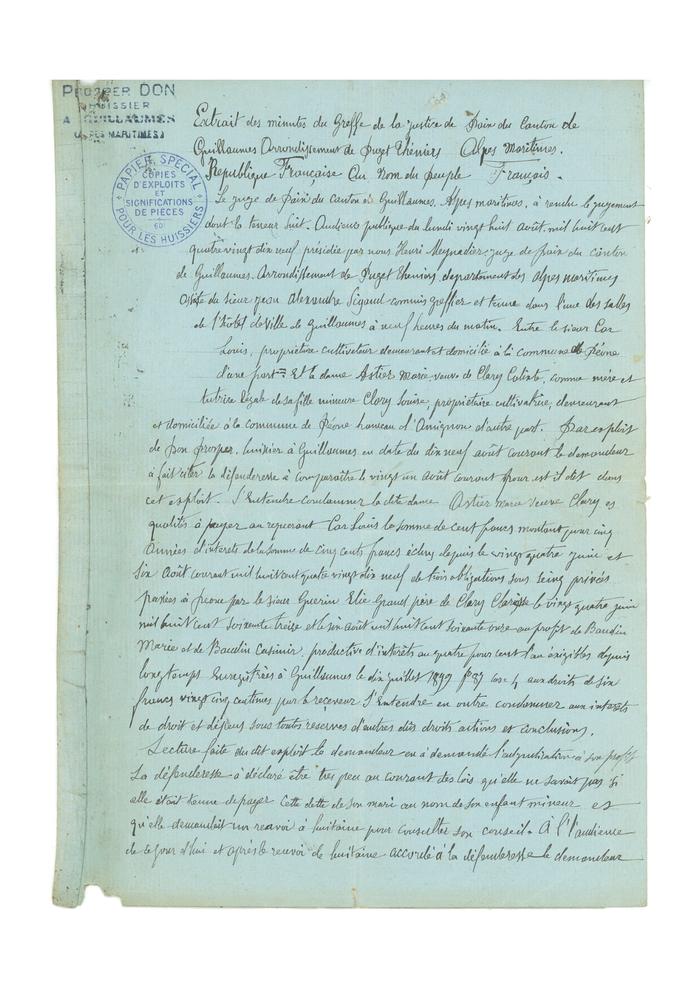 PROSPER DON
HUISSIER
A GUILLAUMES
(ALPES MARITIMES)
PAPIER SPECIAL
COPIES
D'EXPLOITS
ET
SIGNIFICATIONS
DE PIÈCES
60
POUR LES HUISSIERS
Extrait des minutes du Greffe de la justice de Paix du Canton de
Guillaumes Arrondissement de Puget Théniers Alpes Maritimes.
République Française Au Nom du peuple Français.
Le juge de paix du canton de Guillaumes, Alpes maritimes, à rendu le jugement
dont la teneur suit. Audience publique du lundi vingt huit Août, mil huit cent
quatre vingt dix neuf, présidée par nous Henri Meynadier, juge de paix du canton
de Guillaumes. Arrondissement de Puget Theniers, département des Alpes maritimes
Assisté du sieur jean Alexandre Sigaud commis greffier et tenue dans l'une des salles
de l'hôtel de ville de Guillaumes à neuf heures du matin. Entre le sieur Car
Louis, propriétaire cultivateur demeurant et domicilié à la commune de Péone
d'une part = Et la dame Astier Marie veuve de Clary Calixte, comme mère et
tutrice légale de sa fille mineure Clary Louise, propriétaire cultivatrice, demeurant
et domiciliée à la commune de Péone hameau d'Amignon d'autre part. Par exploit
de Don Prosper, huissier à Guillaumes en date du dix neuf août courant le demandeur
à fait citer la défenderesse à comparaître le vingt un août courant pour est il dit dans
cet exploit. S'entendre condamner la dite dame Astier Marie veuve Clary es
qualités à payer au requerant Car Louis la somme de cent francs montant pour cinq
Années d'interets de la somme de cinq cents francs échus depuis le vingt quatre juin et
six Août courant mil huit cent quatre vingt dix neuf de trois obligations sous seing privés
passées à Peone par le sieur Guerin Elie Grand père de Clary le vingt quatre juin
mil huit cent soixante treize et le six août mil huit cent soixante onze au profit de Baudin
Marie et de Baudin Casimir, productive d'intérêts au quatre pour cent l'an éxigibles depuis
longtemps Enregistrées à Guillaumes le dix juillet 1899 f° 87 case 4 aux droits de six
francs vingt cinq centimes par le receveur S'entendre en outre condamner aux interets
de droit et dépens sous toutes reserves d'autres dûs droits actions et conclusions.
Lecture faite du dit exploit le demandeur en à demandé l'adjudication à son profit
La défenderesse à déclaré être tres peu au courant des lois qu'elle ne savait pas si
elle était tenue de payer cette dette de son mari au nom de son enfant mineur et
qu'elle demandait un renvoi à huitaine pour consulter son conseil. A l'audience
de ce jour d'hui et après le renvoi de huitaine accordé à la défenderesse le demandeur